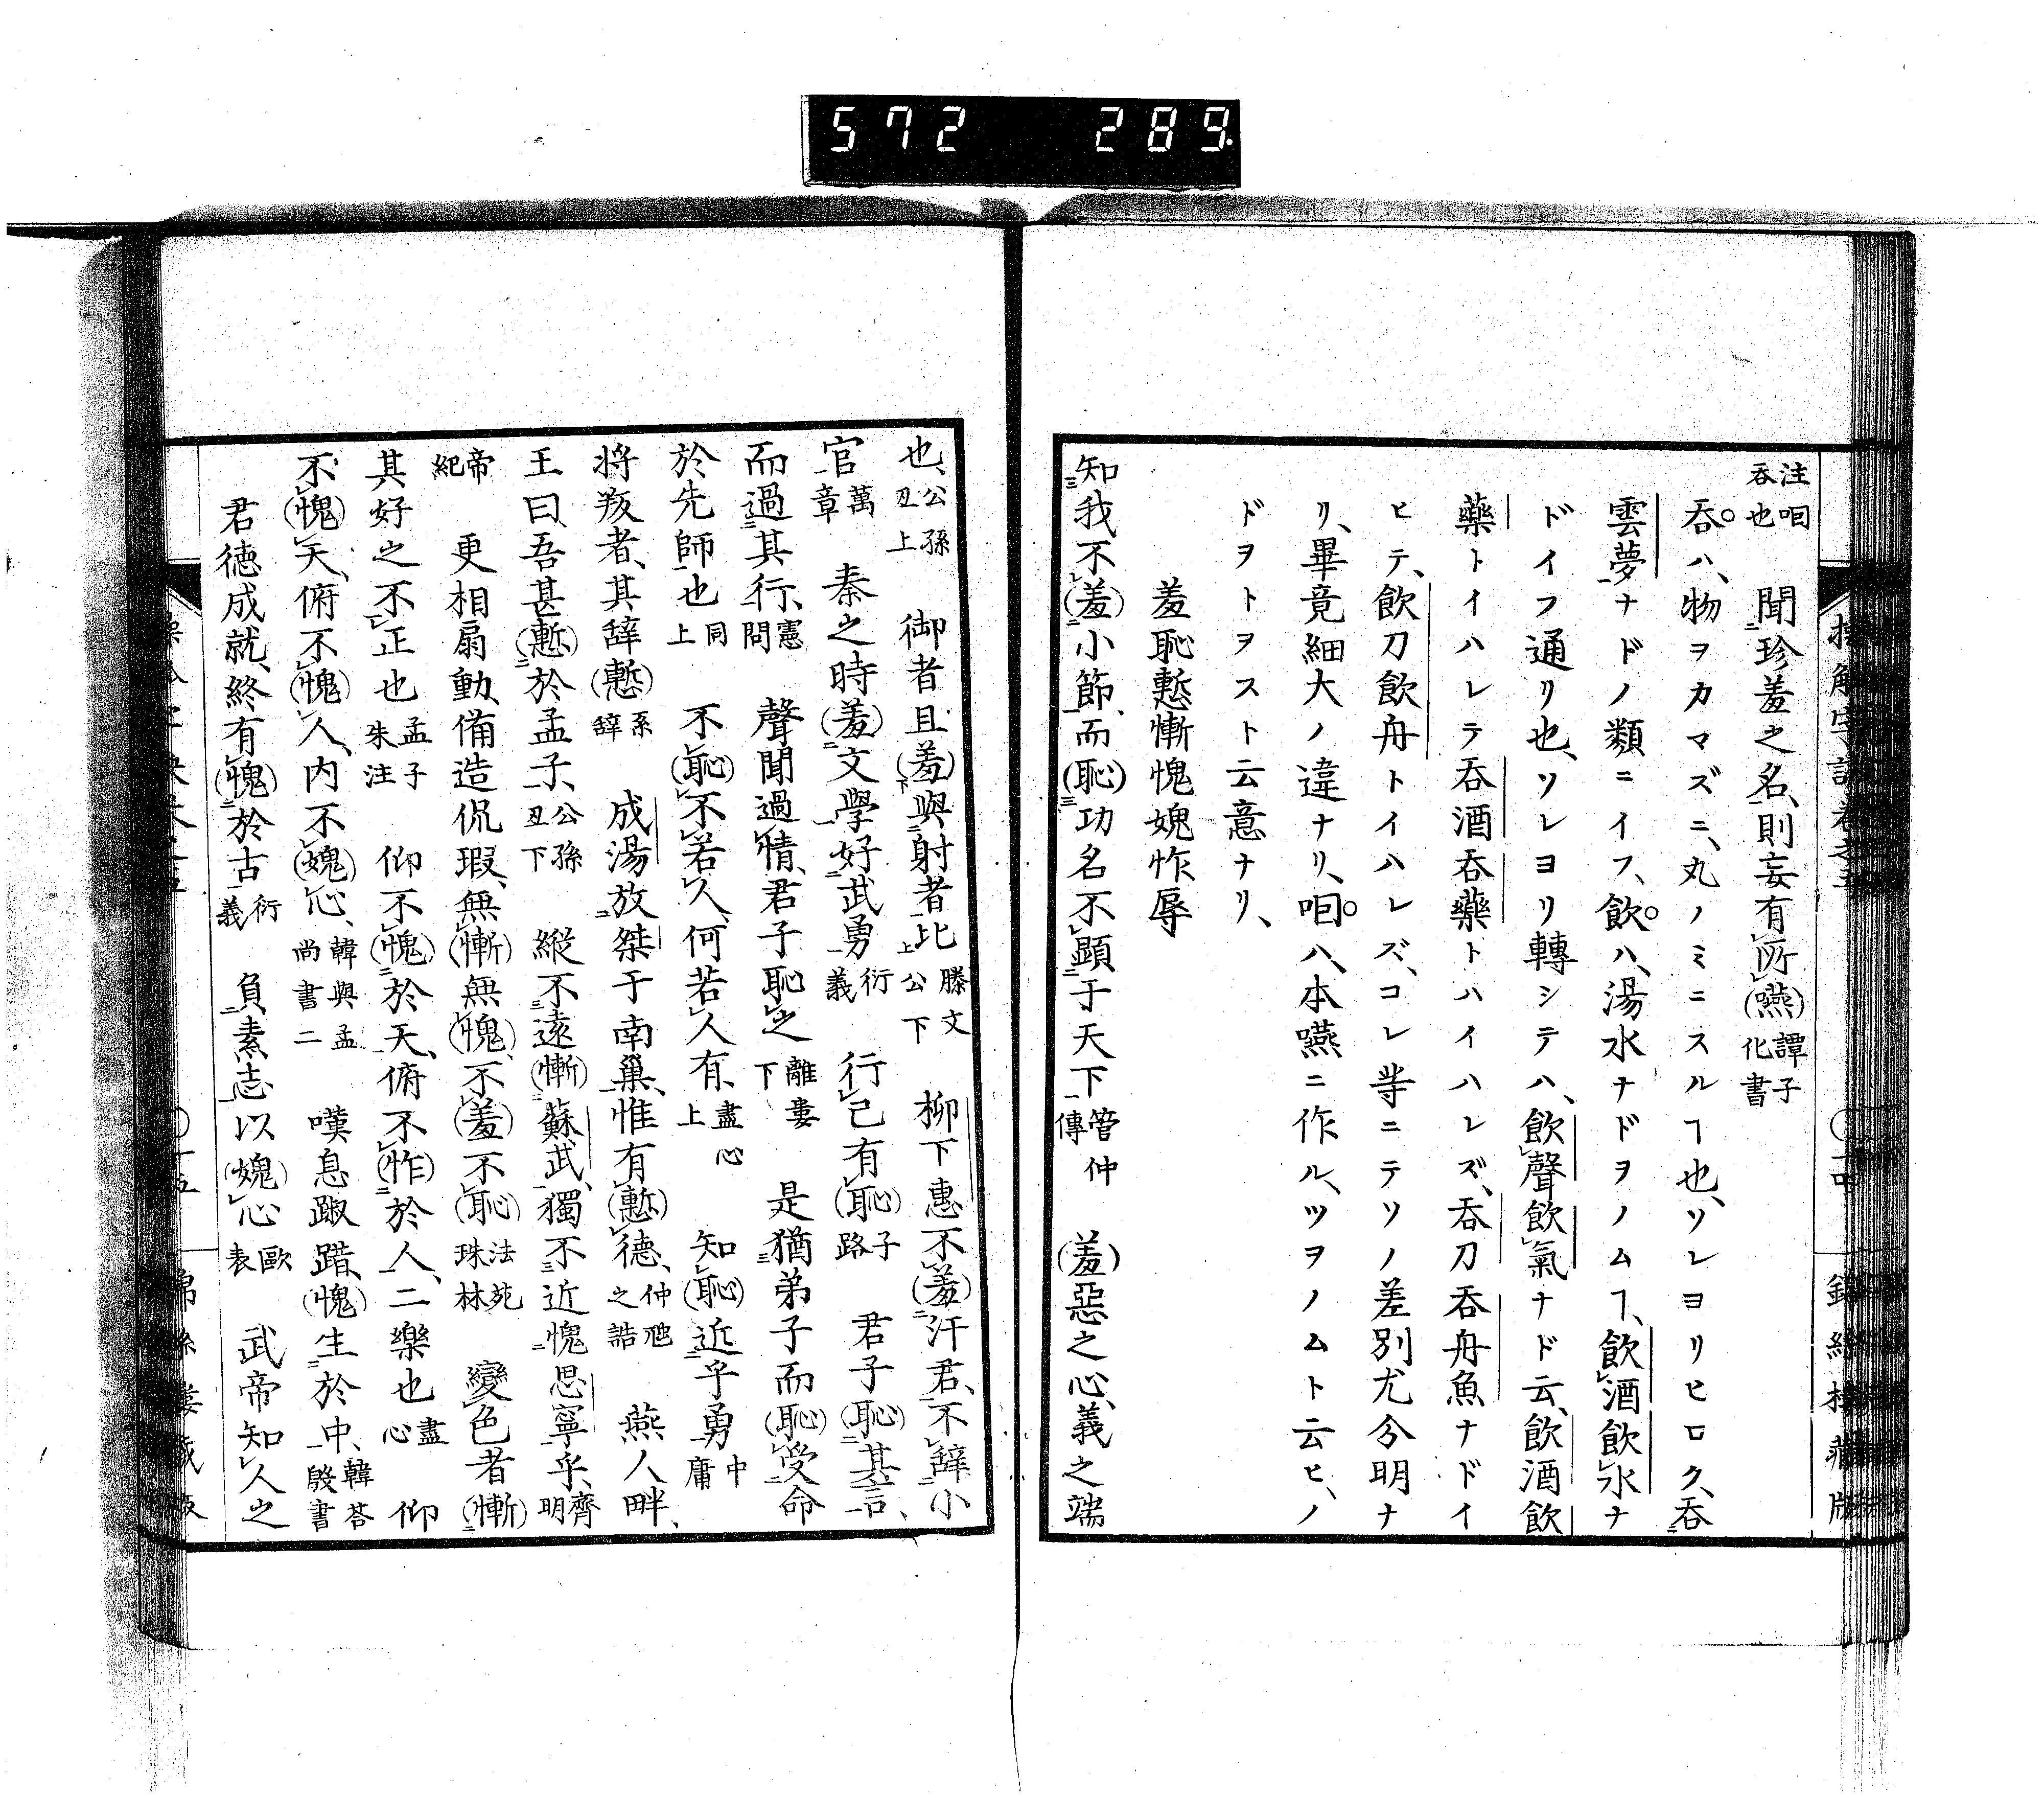 572 289
注咽呑也 聞珍羞之名、則妄有所嚥 譚子化書
呑ハ、物ヲカマズニ、丸ノミニスルヿ也、ソレヨリヒロク、呑
雲夢ナドノ類ニイフ、飲ハ、湯水ナドヲノムヿ、飲酒飲水ナ
ドイフ通リ也、ソレヨリ轉シテハ、飲聲飲氣ナド云、飲酒飲
藥トイハレテ呑酒呑藥トハイハレズ、呑刀呑舟魚ナドイ
ヒテ、飲刀飲舟トイハレズ、コレ等ニテソノ差別尤分明ナ
リ、畢竟細大ノ違ナリ、咽ハ、本嚥ニ作ル、ツヲノムト云ヒ、ノ
ドヲトヲスト云意ナリ、
羞恥慙慚愧媿怍辱
知我不羞小節、而恥功名不顯于天下 管仲傳 羞惡之心、義之端
也、公孫丑上 御者且羞與射者比 滕文公下 柳下惠不羞汙君、不辭小
官 萬章 秦之時羞文學好武勇 衍義 行己有恥 子路 君子恥其言、
而過其行、憲問 聲聞過情、君子恥之 離婁下 是猶弟子而恥受命
於先師也 同上 不恥不若人、何若人有、盡心上 知恥近乎勇 中庸
將叛者、其辭慙 系辭 成湯放桀于南巢、惟有慙德、仲虺之誥 燕人畔、
王曰、吾甚慙於孟子、公孫丑下 縱不遠慚蘇武、獨不近愧思寧乎、齊明
帝紀 更相扇動、備造侃瑕、無慚無愧、不羞不恥 法苑珠林 變色者慚
其好之不正也 孟子朱注 仰不愧於天、俯不怍於人、二樂也 盡心 仰
不愧天、俯不愧人、内不媿心、韓與孟尚書二 嘆息踧踖、愧生於中、韓荅殷書
君德成就、終有愧於古 衍義 負素志以媿心 歐表 武帝知人之